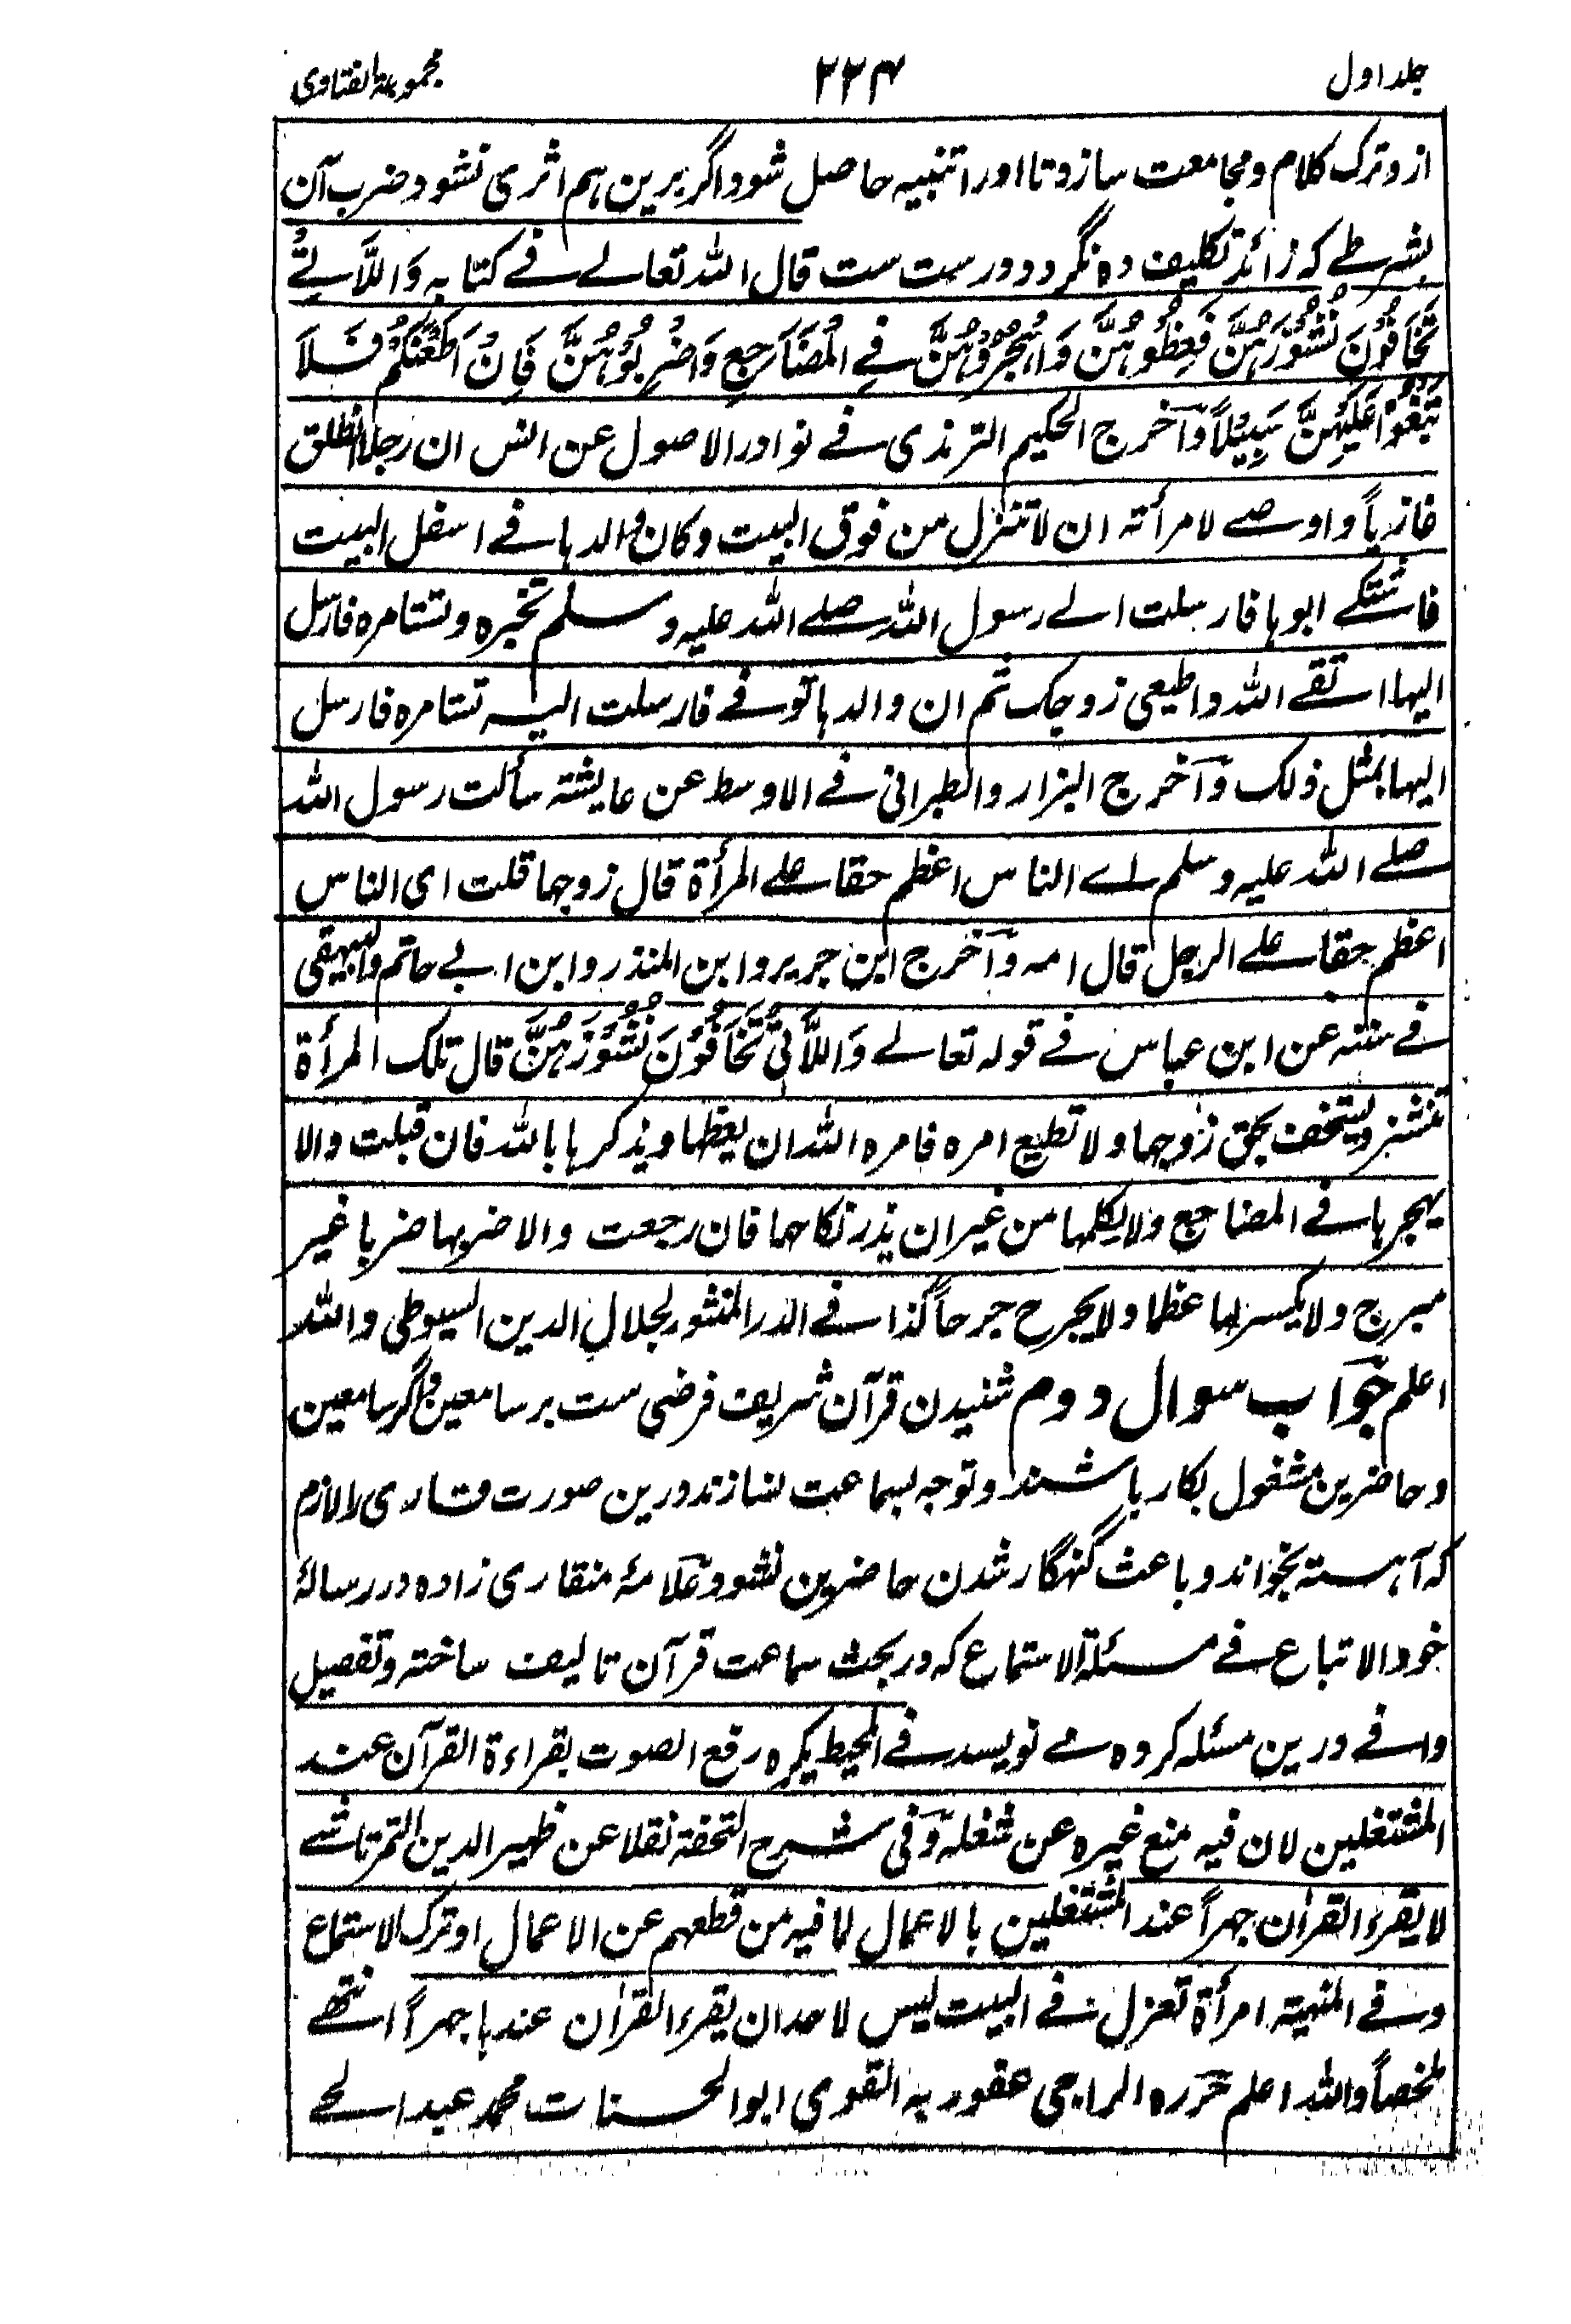 جلد اول ۲۲۴ مجموعۃ الفتاوی
از و ترک کلام و مجامعت سازد تا او را تنبیہ حاصل شود و اگر برین ہم اثری نشود ضرب آن
بشرطے کہ زائد تکلیف دہ نگردد درست ست قال اللہ تعالے فے کتابہ وَاللَّاتِيْ
تَخَافُوْنَ نُشُوْزَہُنَّ فَعِظُوْہُنَّ وَاہْجُرُوْہُنَّ فِے الْمَضَاجِعِ وَاضْرِبُوْہُنَّ فَاِنْ اَطَعْنَكُمْ فَلَا
تَبْغُوْا عَلَيْہِنَّ سَبِيْلًا وآخرج الحكيم الترمذی فے نوادر الاصول عن انس ان رجلا انطلق
غازياً واوصے لامرأتہ ان لا تنزل من فوق البيت وكان والدہا فے اسفل البيت
فاشتكے ابوہا فارسلت الے رسول اللہ صلے اللہ عليہ وسلم تخبرہ وتستامرہ فارسل
اليہا اتقے اللہ واطيعی زوجک ثم ان والدہا توفے فارسلت اليہ تستامرہ فارسل
اليہا بمثل ذلک وآخرج البزار والطبرانی فے الاوسط عن عايشۃ سألت رسول اللہ
صلے اللہ عليہ وسلم اے الناس اعظم حقا علے المرأۃ قال زوجہا قلت ای الناس
اعظم حقا علے الرجل قال امہ وآخرج ابن جرير وابن المنذر وابن ابے حاتم والبيہقی
فے سننہ عن ابن عباس فے قولہ تعالے وَاللَّاتِيْ تَخَافُوْنَ نُشُوْزَہُنَّ قال تلک المرأۃ
تنشز وتستخف بحق زوجہا ولا تطيع امرہ فامرہ اللہ ان يعظہا ويذكرہا باللہ فان قبلت والا
يہجرہا فے المضاجع ولا يكلمہا من غير ان يذر نكاحہا فان رجعت والا ضربہا ضربا غير
مبرح ولا يكسر لہا عظما ولا يجرح جرحاً كذا فے الدر المنثور لجلال الدين السيوطی واللہ
اعلم جواب سوال دوم شنیدن قرآن شریف فرضی ست بر سامعین و اگر سامعین
و حاضرین مشغول بکار باشند و توجہ بسماعت نسازند درین صورت قاری را لازم
کہ آہستہ بخواند و باعث گنہگار شدن حاضرین نشود و علامۂ منقاری زادہ در رسالۂ
خود الاتباع فے مسئلۃ الاستماع کہ در بحث سماعت قرآن تالیف ساختہ و تفصیل
وافے درین مسئلہ کردہ مے نویسد فے المحيط يكرہ رفع الصوت بقراءۃ القرآن عند
المشتغلين لان فيہ منع غيرہ عن شغلہ وفی شرح التحفۃ نقلا عن ظہير الدين التمرتاشے
لا يقرء القرآن جہراً عند المشتغلين بالاعمال لما فيہ من قطعہم عن الاعمال او ترک الاستماع
وفے المنيۃ امرأۃ تغزل فے البيت ليس لاحد ان يقرء القرآن عندہا جہراً انتہے
ملخصاً واللہ اعلم حررہ الراجی عفو ربہ القوی ابو الحسنات محمد عبد الحے